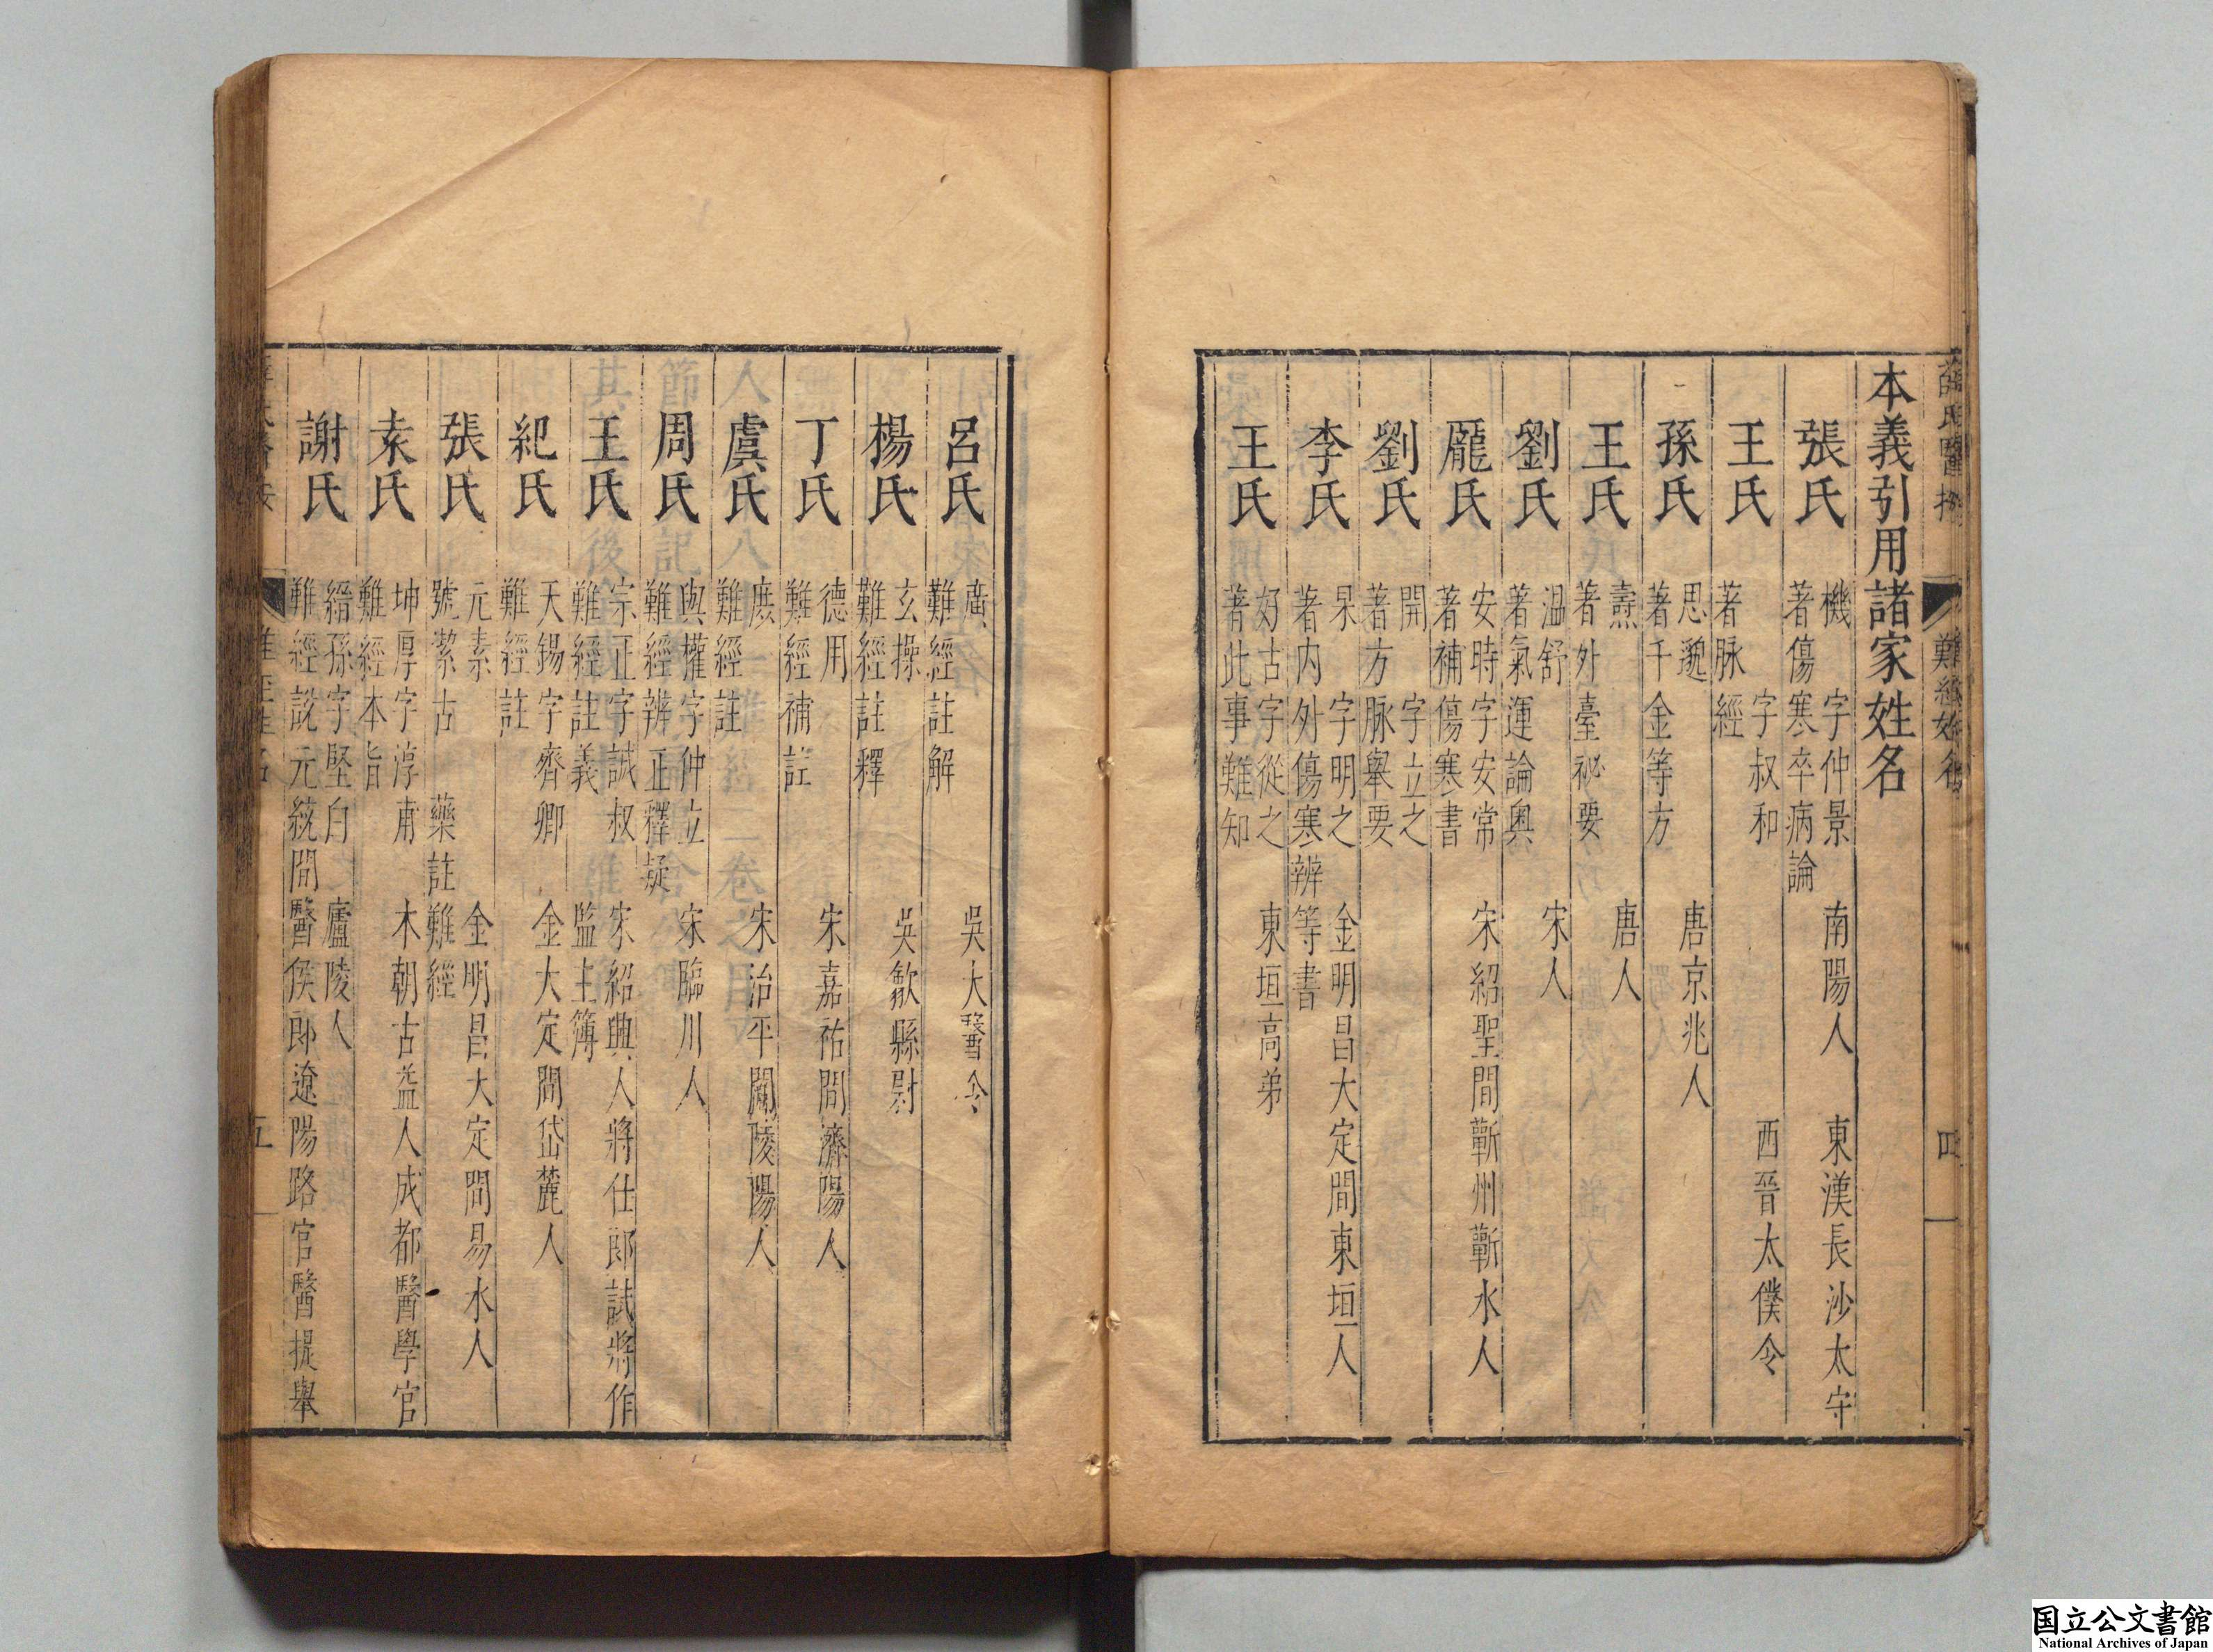 本義引用諸家姓名
張氏 機 字仲景 南陽人 東漢長沙太守
著傷寒卒病論
王氏 字叔和 西晉太僕令
著脉經
孫氏 思邈 唐京兆人
著千金等方
王氏 燾 唐人
著外臺祕要
劉氏 溫舒 宋人
著氣運論奧
龐氏 安時字安常 宋紹聖間蘄州蘄水人
著補傷寒書
劉氏 開 字立之
著方脉舉要
李氏 杲 字明之 金明昌大定間東垣人
著内外傷寒辨等書
王氏 好古字從之 東垣高弟
著此事難知
難經姓名
四
呂氏 廣 吳太醫令
難經註解
楊氏 玄操 吳歙縣尉
難經註釋
丁氏 德用 宋嘉祐間濟陽人
難經補註
虞氏 庶 宋治平間陵陽人
難經註
周氏 與權字仲立 宋臨川人
難經辨正釋疑
王氏 宗正字誠叔 宋紹興人將仕郎試將作
難經註義 監主簿
紀氏 天錫字齊卿 金大定間岱麓人
難經註
張氏 元素 金明昌大定間易水人
號潔古 藥註難經
袁氏 坤厚字淳甫 本朝古益人成都醫學官
難經本旨
謝氏 縉孫字堅白 廬陵人
難經說元統間醫侯郎遼陽路官醫提舉
五
国立公文書館
National Archives of Japan